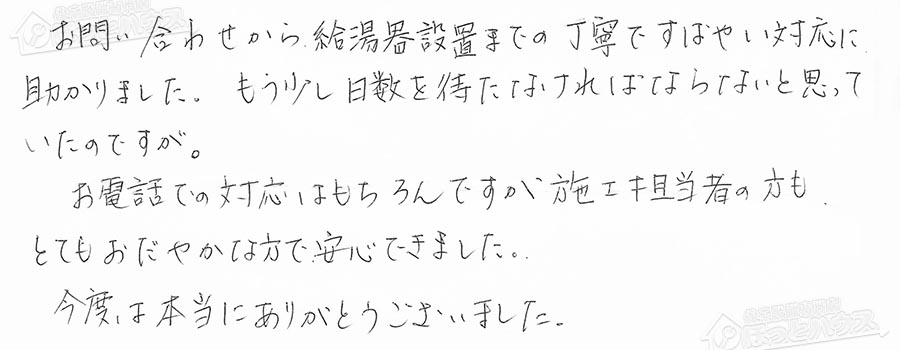 お問い合わせから、給湯器設置までの丁寧ですばやい対応に
助かりました。もう少し日数を待たなければならないと思って
いたのですが。
お電話での対応はもちろんですが、施工担当者の方も、
とてもおだやかな方で、安心できました。
今度は本当にありがとうございました。
ほっとハウス